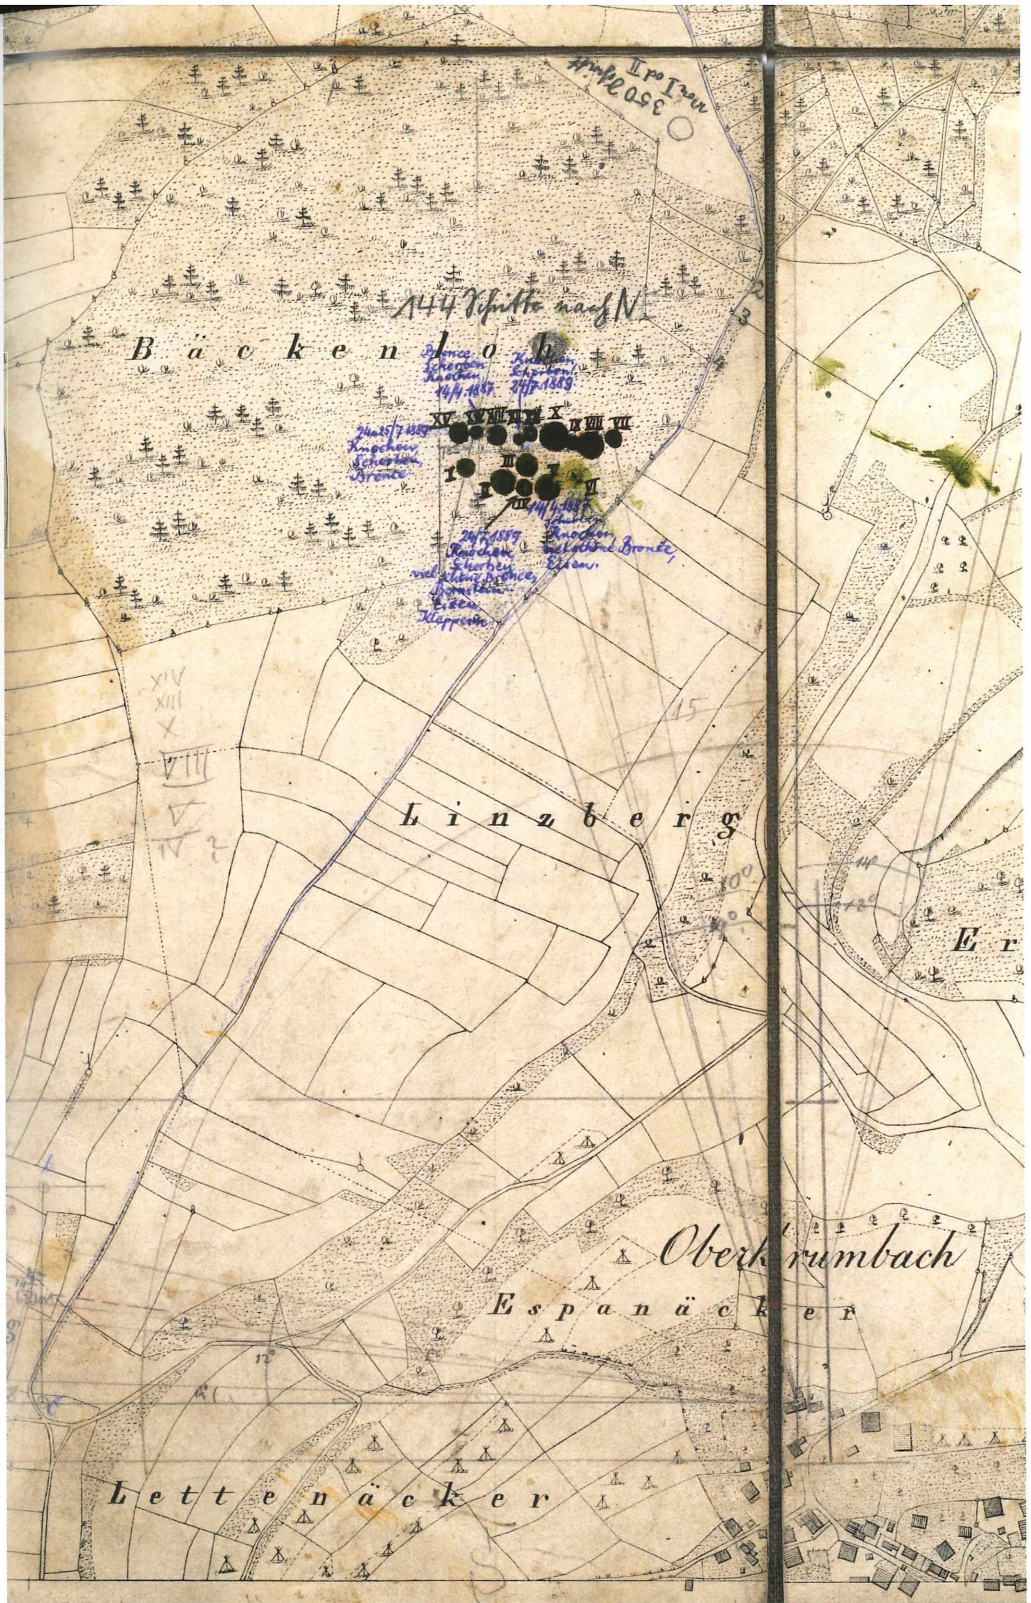 350 Schritt
von I od II
144 Schritte nach N
2
3
4
Bäckenloh
Bronce
Scherben
Knochen
14/4.1887
Knochen,
Scherben,
24/7.1889
XV XIV XIII XII XI X IX VIII VII
24u25/7 1889
Knochen,
Scherben,
Bronce
I II III IV V VI
14/4.1887
Scherben
Knochen,
viel schöne Bronce,
Eisen.
24/7.1889
Knochen
Scherben
viel schöne Bronce,
Bernstein
Eisen
Klappern
XIV
XIII
X
VIII
V
IV ?
15
Linzberg
14°
10°
12°
Er
Oberkrumbach
Espanäcker
12°
Lettenäcker